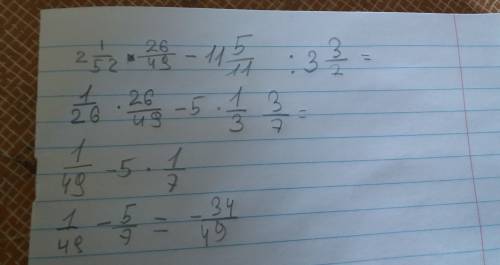 2 1/52 · 26/49 - 11 5/11 : 3 3/7 =
1/26 · 26/49 - 5 · 1/3 3/7 =
1/49 - 5 · 1/7
1/49 - 5/7 = -34/49